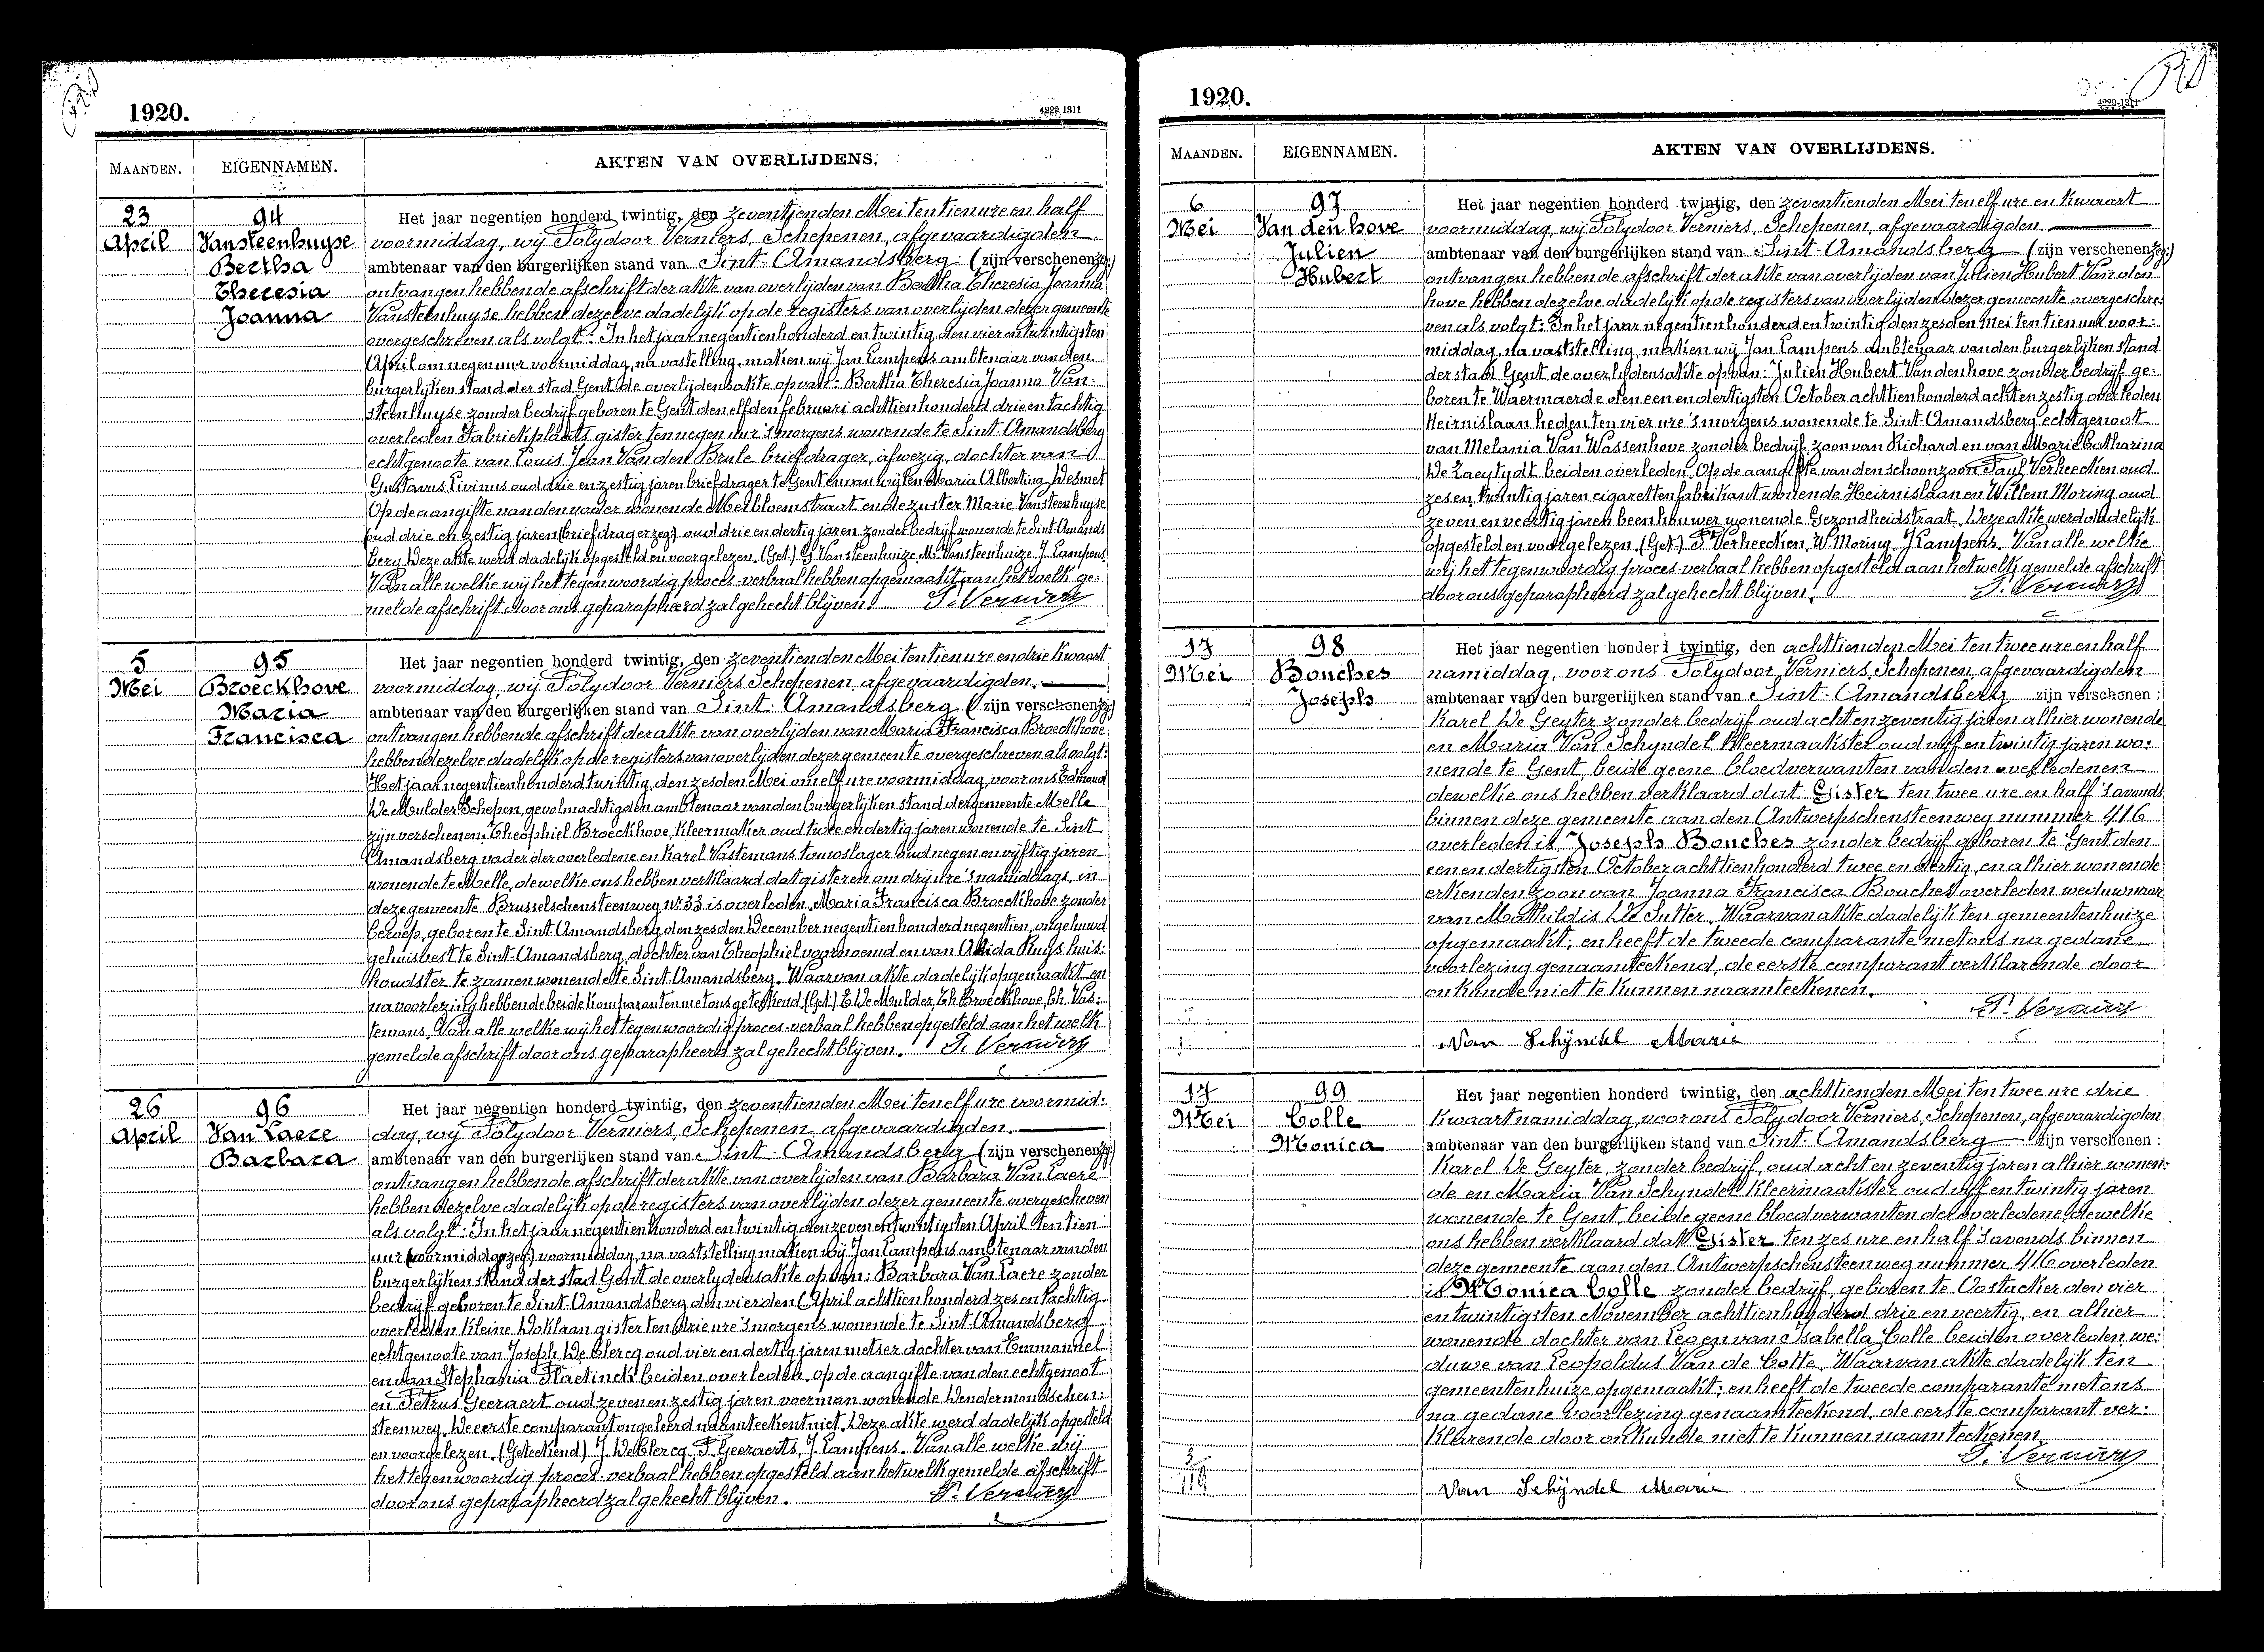 1920.
4229 1311
MAANDEN.
EIGENNAMEN.
AKTEN VAN OVERLIJDENS.
23
April
94
Vansteenhuyse
Bertha
Theresia
Joanna
Het jaar negentien honderd twintig, den zeventienden Mei ten tien ure en half
voormiddag, wij Polydoor Verniers, Schepenen, afgevaardigden
ambtenaar van den burgerlijken stand van Sint-Amandsberg (zijn verschenen
ontvangen hebbende afschrift der akte van overlijden van Bertha Theresia Joanna
Vansteenhuyse hebben dezelve dadelijk op de registers van overlijden dezer gemeente
overgeschreven als volgt: In het jaar negentienhonderd en twintig, den vier en twintigsten
April om negen uur voormiddag, na vastelling, maken wij Jan Lampens ambtenaar van den
burgerlijken stand der stad Gent de overlijdensakte op van: Bertha Theresia Joanna Van-
steenhuyse zonder bedrijf geboren te Gent den elfden februari achttienhonderd drie en tachtig
overleden Fabriekplaats gister ten negen uur 's morgens wonende te Sint Amandsberg
echtgenoote van Louis Jean Van den Brule briefdrager, afwezig, dochter van
Gustavus Livinus oud drie en zestig jaren briefdrager te Gent en van wijlen Maria Albertina Desmet
Op de aangifte van den vader wonende Meibloemstraat en de zuster Marie Vansteenhuyse
oud drie en zestig jaren (briefdrager zeg) oud drie en dertig jaren zonder bedrijf wonende te Sint Amands
berg. Deze akte werd dadelijk opgesteld en voorgelezen. (Get.) G. Vansteenhuize. M. Vansteenhuize. J. Lampens.
Van alle welke wij het tegenwoordig proces-verbaal hebben opgemaakt aan het welk ge-
melde afschrift door ons geparapheerd zal gehecht blijven. P. Verniers
5
Mei
95
Broeckhove
Maria
Francisca
Het jaar negentien honderd twintig, den zeventienden Mei ten tien ure en drie kwaart
voormiddag, wij Polydoor Verniers Schepenen, afgevaardigden
ambtenaar van den burgerlijken stand van Sint-Amandsberg (zijn verschenen
ontvangen hebbende afschrift der akte van overlijden van Maria Francisca Broeckhove
hebben dezelve dadelijk op de registers van overlijden dezer gemeente overgeschreven als volgt:
Het jaar negentienhonderd twintig, den zesden Mei om elf ure voormiddag, voor ons Edmond
De Mulder Schepen, gevolmachtigden ambtenaar van den burgerlijken stand der gemeente Melle
zijn verschenen: Theophiel Broeckhove, Kleermaker oud twee en dertig jaren wonende te Sint
Amandsberg vader der overledene en Karel Vastemans touwslager oud negen en vijftig jaren
wonende te Melle, dewelke ons hebben verklaard dat gisteren om drij ure 's namiddags, in
deze gemeente Brusselschensteenweg nr 33 is overleden, Maria Francisca Broeckhove zonder
beroep, geboren te Sint-Amandsberg den zesden December negentienhonderd negentien, ongehuwd
gehuisvest te Sint-Amandsberg, dochter van Theophiel voornoemd en van Alida Ruys huis-
houdster te zamen wonende te Sint-Amandsberg. Waarvan akte dadelijk opgemaakt en
na voorlezing hebbende beide komparanten met ons geteekend. (Get.) E. De Mulder, Th. Broeckhove, Ch. Vas-
temans. Van alle welke wij het tegenwoordig proces-verbaal hebben opgesteld aan het welk
gemelde afschrift door ons geparapheerd zal gehecht blijven. P. Verniers
26
April
96
Van Laere
Barbara
Het jaar negentien honderd twintig, den zeventienden Mei ten elf ure voormid-
dag, wij Polydoor Verniers, Schepenen, afgevaardigden
ambtenaar van den burgerlijken stand van Sint-Amandsberg (zijn verschenen
ontvangen hebbende afschrift der akte van overlijden van Barbara Van Laere
hebben dezelve dadelijk op de registers van overlijden dezer gemeente overgescheven
als volgt: In het jaar negentienhonderd en twintig den zeven en twintigsten April ten tien
uur (voormiddag zeg) voormiddag, na vaststelling maken wij Jan Lampens ambtenaar van den
burgerlijken stand der stad Gent de overlydensakte op van: Barbara Van Laere zonder
bedrijf geboren te Sint-Amandsberg den vierden April achttienhonderd zes en tachtig
overleden Kleine Doklaan gister ten drie ure 's morgens wonende te Sint-Amandsberg
echtgenoote van Joseph De Clercq oud vier en dertig jaren metser dochter van Emmanuel
en van Stephania Plaetinck beiden overleden, op de aangifte van den echtgenoot
en Petrus Geeraert oud zeven en zestig jaren voerman wonende Dendermondschen-
steenweg. De eerste comparant ongeleerd naamteekent niet. Deze akte werd dadelijk opgesteld
en voorgelezen. (Geteekend) J. De Clercq. P. Geeraerts, J. Lampens. Van alle welke wij
het tegenwoordig proces-verbaal hebben opgesteld aan het welk gemelde afschrift
door ons geparapheerd zal gehecht blijven. P. Verniers
1920.
4229-1311
MAANDEN.
EIGENNAMEN.
AKTEN VAN OVERLIJDENS.
6
Mei
97
Van den hove
Julien
Hubert
Het jaar negentien honderd twintig, den zeventienden Mei ten elf ure en kwaart
voormiddag, wij Polydoor Verniers, Schepenen, afgevaardigden
ambtenaar van den burgerlijken stand van Sint-Amandsberg (zijn verschenen
ontvangen hebbende afschrift der akte van overlijden van Julien Hubert Van den
hove hebben dezelve dadelijk op de registers van overlijden dezer gemeente overgeschre-
ven als volgt: In het jaar negentienhonderd en twintig den zesden Mei ten tien uur voor-
middag, na vaststelling, maken wij Jan Lampens ambtenaar van den burgerlijken stand
der stad Gent de overlijdensakte op van: Julien Hubert Van den hove zonder bedrijf ge-
boren te Waermaerde den een en dertigsten October achttienhonderd acht en zestig overleden
Heirnislaan heden ten vier ure 's morgens wonende te Sint-Amandsberg echtgenoot
van Melania Van Wassenhove zonder bedrijf zoon van Richard en van Marie Catharina
De Zaeytydt beiden overleden. Op de aangifte van den schoonzoon Paul Verheecken oud
zes en twintig jaren cigarettenfabrikant wonende Heirnislaan en Willem Moring oud
zeven en veertig jaren beenhouwer wonende Gezondheidstraat. Deze akte werd dadelijk
opgesteld en voorgelezen. (Get.) P. Verheecken, W. Moring, J. Lampens. Van alle welke
wij het tegenwoordig proces-verbaal hebben opgesteld aan het welk gemelde afschrift
door ons geparapheerd zal gehecht blijven. P. Verniers
17
Mei
98
Bouches
Joseph
Het jaar negentien honderd twintig, den achttienden Mei ten twee ure en half
namiddag, voor ons Polydoor Verniers, Schepenen, afgevaardigden
ambtenaar van den burgerlijken stand van Sint-Amandsberg zijn verschenen :
Karel De Geyter zonder bedrijf oud acht en zeventig jaren alhier wonende
en Maria Van Schyndel Kleermaakster oud vijf en twintig jaren wo-
nende te Gent, beide geene bloedverwanten van den overledenen
dewelke ons hebben verklaard dat Gister ten twee ure en half 's avonds
binnen deze gemeente aan den Antwerpschensteenweg nummer 416
overleden is, Joseph Bouches zonder bedrijf geboren te Gent den
een en dertigsten October achttienhonderd twee en dertig, en alhier wonende
erkenden zoon van Joanna Francisca Bouches overleden weduwnaar
van Mathildis De Sutter. Waarvan akte dadelijk ten gemeentenhuize
opgemaakt; en heeft de tweede comparante met ons na gedane
voorlezing genaamteekend, de eerste comparant verklarende door
onkunde niet te kunnen naamteekenen.
P. Verniers
Van Schijndel Marie
17
Mei
99
Colle
Monica
Het jaar negentien honderd twintig, den achttienden Mei ten twee ure drie
kwaart namiddag, voor ons Polydoor Verniers, Schepenen, afgevaardigden
ambtenaar van den burgerlijken stand van Sint-Amandsberg zijn verschenen :
Karel De Geyter, zonder bedrijf, oud acht en zeventig jaren alhier wonen-
de en Maria Van Schyndel Kleermaakster oud vijf en twintig jaren
wonende te Gent, beide geene bloedverwanten der overledene dewelke
ons hebben verklaard dat Gister ten zes ure en half 's avonds binnen
deze gemeente aan den Antwerpschensteenweg nummer 416 overleden
is Monica Colle zonder bedrijf geboren te Oostacker den vier
en twintigsten November achttienhonderd drie en veertig, en alhier
wonende dochter van Leo en van Isabella Colle beiden overleden we-
duwe van Leopoldus Van de Cotte. Waarvan akte dadelijk ten
gemeentenhuize opgemaakt; en heeft de tweede comparante met ons
na gedane voorlezing genaamteekend, de eerste comparant ver-
klarende door onkunde niet te kunnen naamteekenen.
P. Verniers
3
119
Van Schijndel Marie